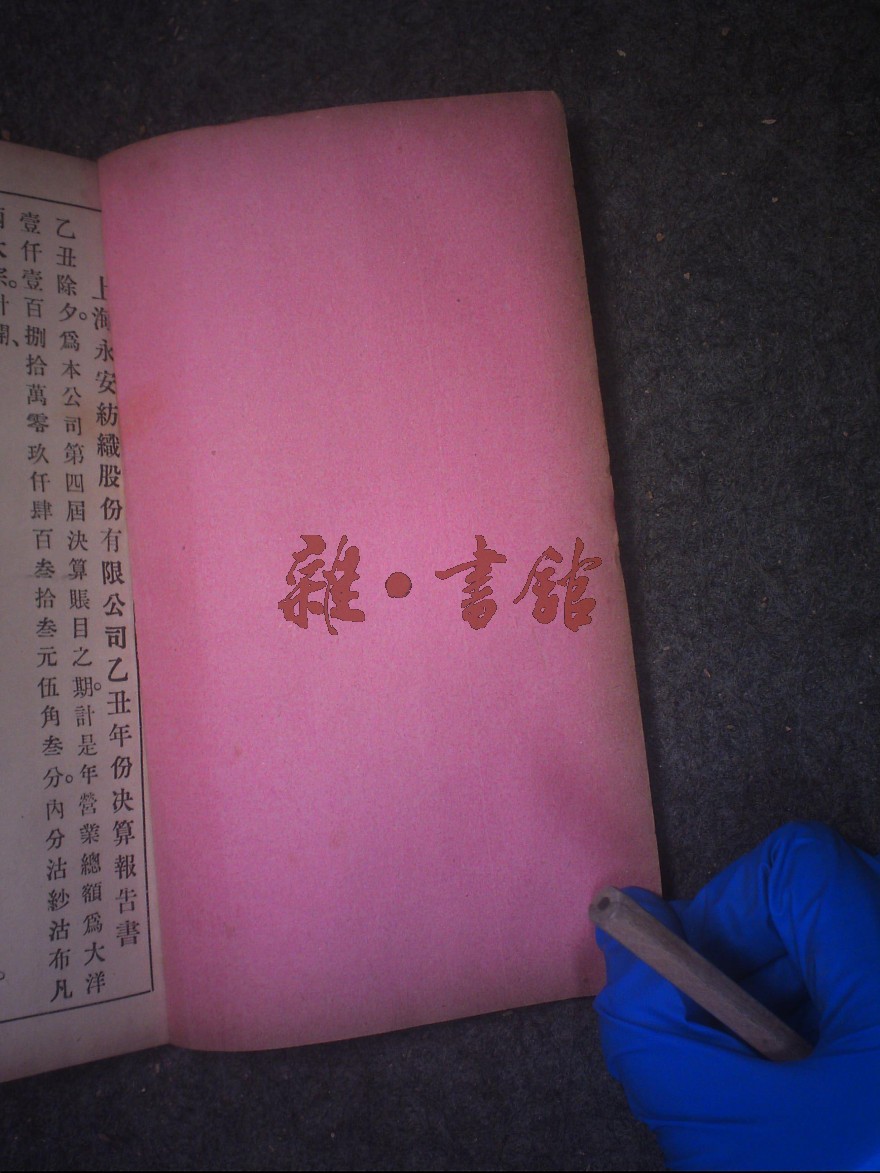 上海永安紡織股份有限公司乙丑年份決算報告書
乙丑除夕。爲本公司第四屆決算賬目之期。計是年營業總額爲大洋
壹仟壹百捌拾萬零玖仟肆百叁拾叁元伍角叁分。內分沽紗沽布凡
雜•書館